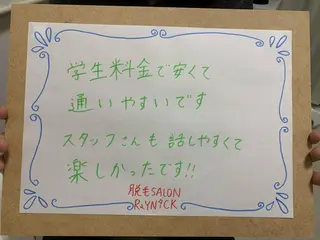 学生料金で安くて
通いやすいです
スタッフさんも話しやすくて
楽しかったです!!
脱毛SALON
RAYN℃K